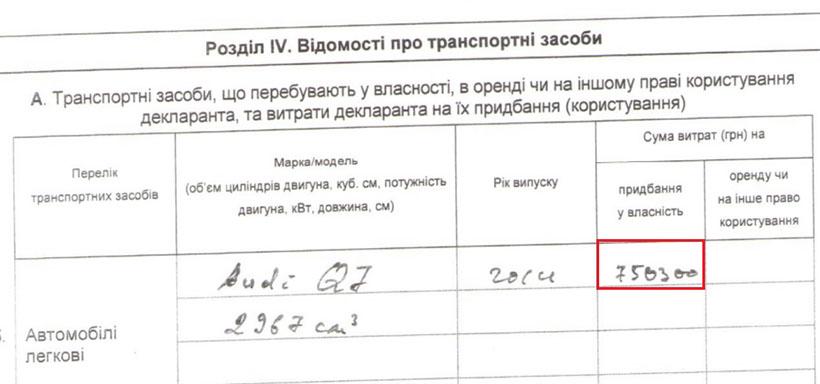 Розділ IV. Відомості про транспортні засоби
А. Транспортні засоби, що перебувають у власності, в оренді чи на іншому праві користування
декларанта, та витрати декларанта на їх придбання (користування)
Перелік
транспортних засобів
Марка/модель
(об'єм циліндрів двигуна, куб. см, потужність
двигуна, кВт, довжина, см)
Рік випуску
Сума витрат (грн) на
придбання
у власність
оренду чи
на інше право
користування
Автомобілі
легкові
Audi Q7
2967 см³
2014
750300